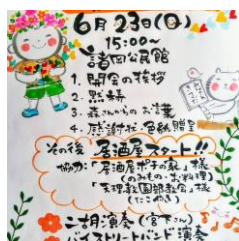 6月23日(日)
15:00～
諸岡公民館
1. 開会の挨拶
2. 黙祷
3. 森さんからのお言葉
4. 感謝状・色紙贈呈
その後 居酒屋スタート!!
協力:「居酒屋ポチの家」様
(のみもの・お料理)
「天理教国都教会」様
(たこやき)
二胡演奏(宮下さん)
バイストリートバンド演奏